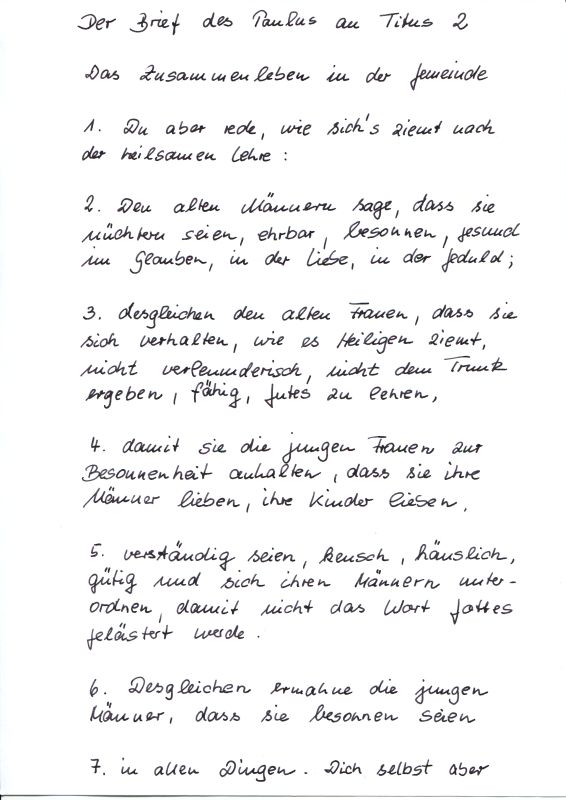 Der Brief des Paulus an Titus 2
Das Zusammenleben in der Gemeinde
1. Du aber rede, wie sich's ziemt nach
der heilsamen Lehre:
2. Den alten Männern sage, dass sie
nüchtern seien, ehrbar, besonnen, gesund
im Glauben, in der Liebe, in der Geduld;
3. desgleichen den alten Frauen, dass sie
sich verhalten, wie es Heiligen ziemt,
nicht verleumderisch, nicht dem Trunk
ergeben, fähig, Gutes zu lehren,
4. damit sie die jungen Frauen zur
Besonnenheit anhalten, dass sie ihre
Männer lieben, ihre Kinder lieben,
5. verständig seien, keusch, häuslich,
gütig und sich ihren Männern unter-
ordnen, damit nicht das Wort Gottes
gelästert werde.
6. Desgleichen ermahne die jungen
Männer, dass sie besonnen seien
7. in allen Dingen. Dich selbst aber